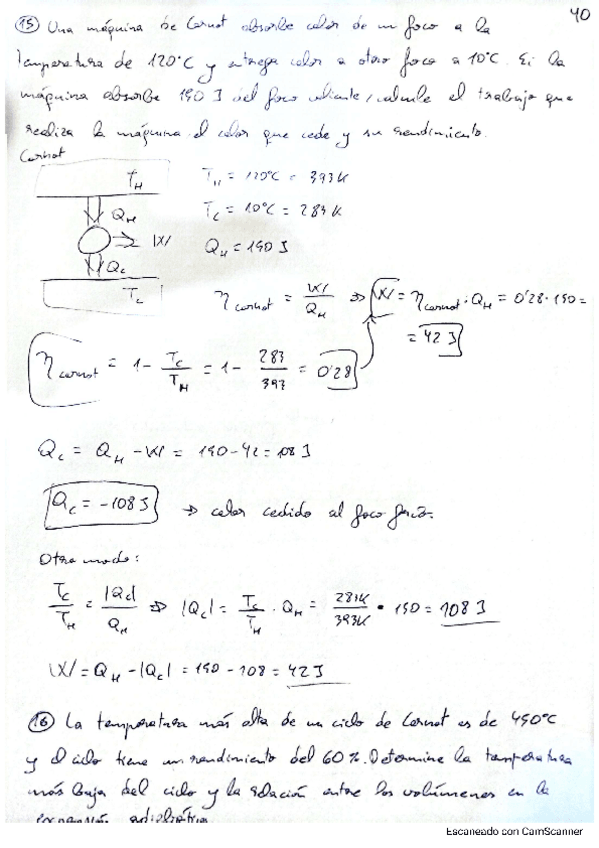 40
(15) Una máquina de Carnot absorbe calor de un foco a la
temperatura de 120°C y entrega calor a otro foco a 10°C. Si la
máquina absorbe 150 J del foco caliente, calcule el trabajo que
realiza la máquina el calor que cede y su rendimiento.
Carnot
T_H
Q_H
|W|
Q_C
T_C
T_H = 120°C = 393K
T_C = 10°C = 283K
Q_H = 150 J
η_carnot = |W|/Q_H ⇒ |W| = η_carnot · Q_H = 0'28 · 150 =
= 42 J
η_carnot = 1 - T_C/T_H = 1 - 283/393 = 0'28
Q_C = Q_H - |W| = 150 - 42 = 108 J
Q_C = -108 J → calor cedido al foco frío.
Otro modo:
T_C/T_H = |Q_C|/Q_H ⇒ |Q_C| = T_C/T_H · Q_H = 283K/393K · 150 = 108 J
|W| = Q_H - |Q_C| = 150 - 108 = 42 J
(16) La temperatura más alta de un ciclo de Carnot es de 450°C
y el ciclo tiene un rendimiento del 60%. Determine la temperatura
más baja del ciclo y la relación entre los volúmenes en la
expansión adiabática.
Escaneado con CamScanner